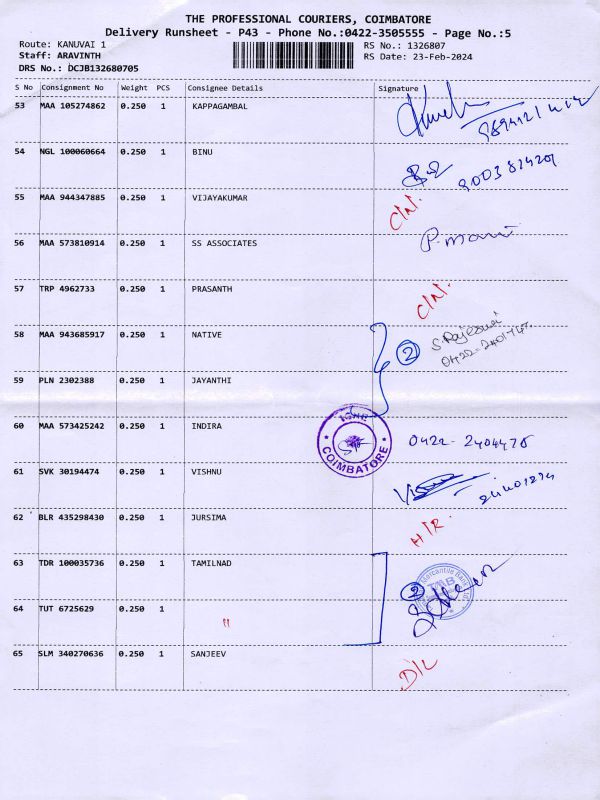 THE PROFESSIONAL COURIERS, COIMBATORE
Delivery Runsheet - P43 - Phone No.:0422-3505555 - Page No.:5
Route: KANUVAI 1 RS No.: 1326807
Staff: ARAVINTH RS Date: 23-Feb-2024
DRS No.: DCJB132680705
S No Consignment No Weight PCS Consignee Details Signature
53 MAA 105274862 0.250 1 KAPPAGAMBAL
54 NGL 100060664 0.250 1 BINU
9003824209
55 MAA 944347885 0.250 1 VIJAYAKUMAR C/N.
56 MAA 573810914 0.250 1 SS ASSOCIATES P. mani
57 TRP 4962733 0.250 1 PRASANTH C/N.
58 MAA 943685917 0.250 1 NATIVE 2
59 PLN 2302388 0.250 1 JAYANTHI
60 MAA 573425242 0.250 1 INDIRA COIMBATORE 0422-2404478
61 SVK 30194474 0.250 1 VISHNU
62 BLR 435298430 0.250 1 JURSIMA H/R.
63 TDR 100035736 0.250 1 TAMILNAD 2 Mercantile Bank Ltd TMB
64 TUT 6725629 0.250 1 "
65 SLM 340270636 0.250 1 SANJEEV D/L